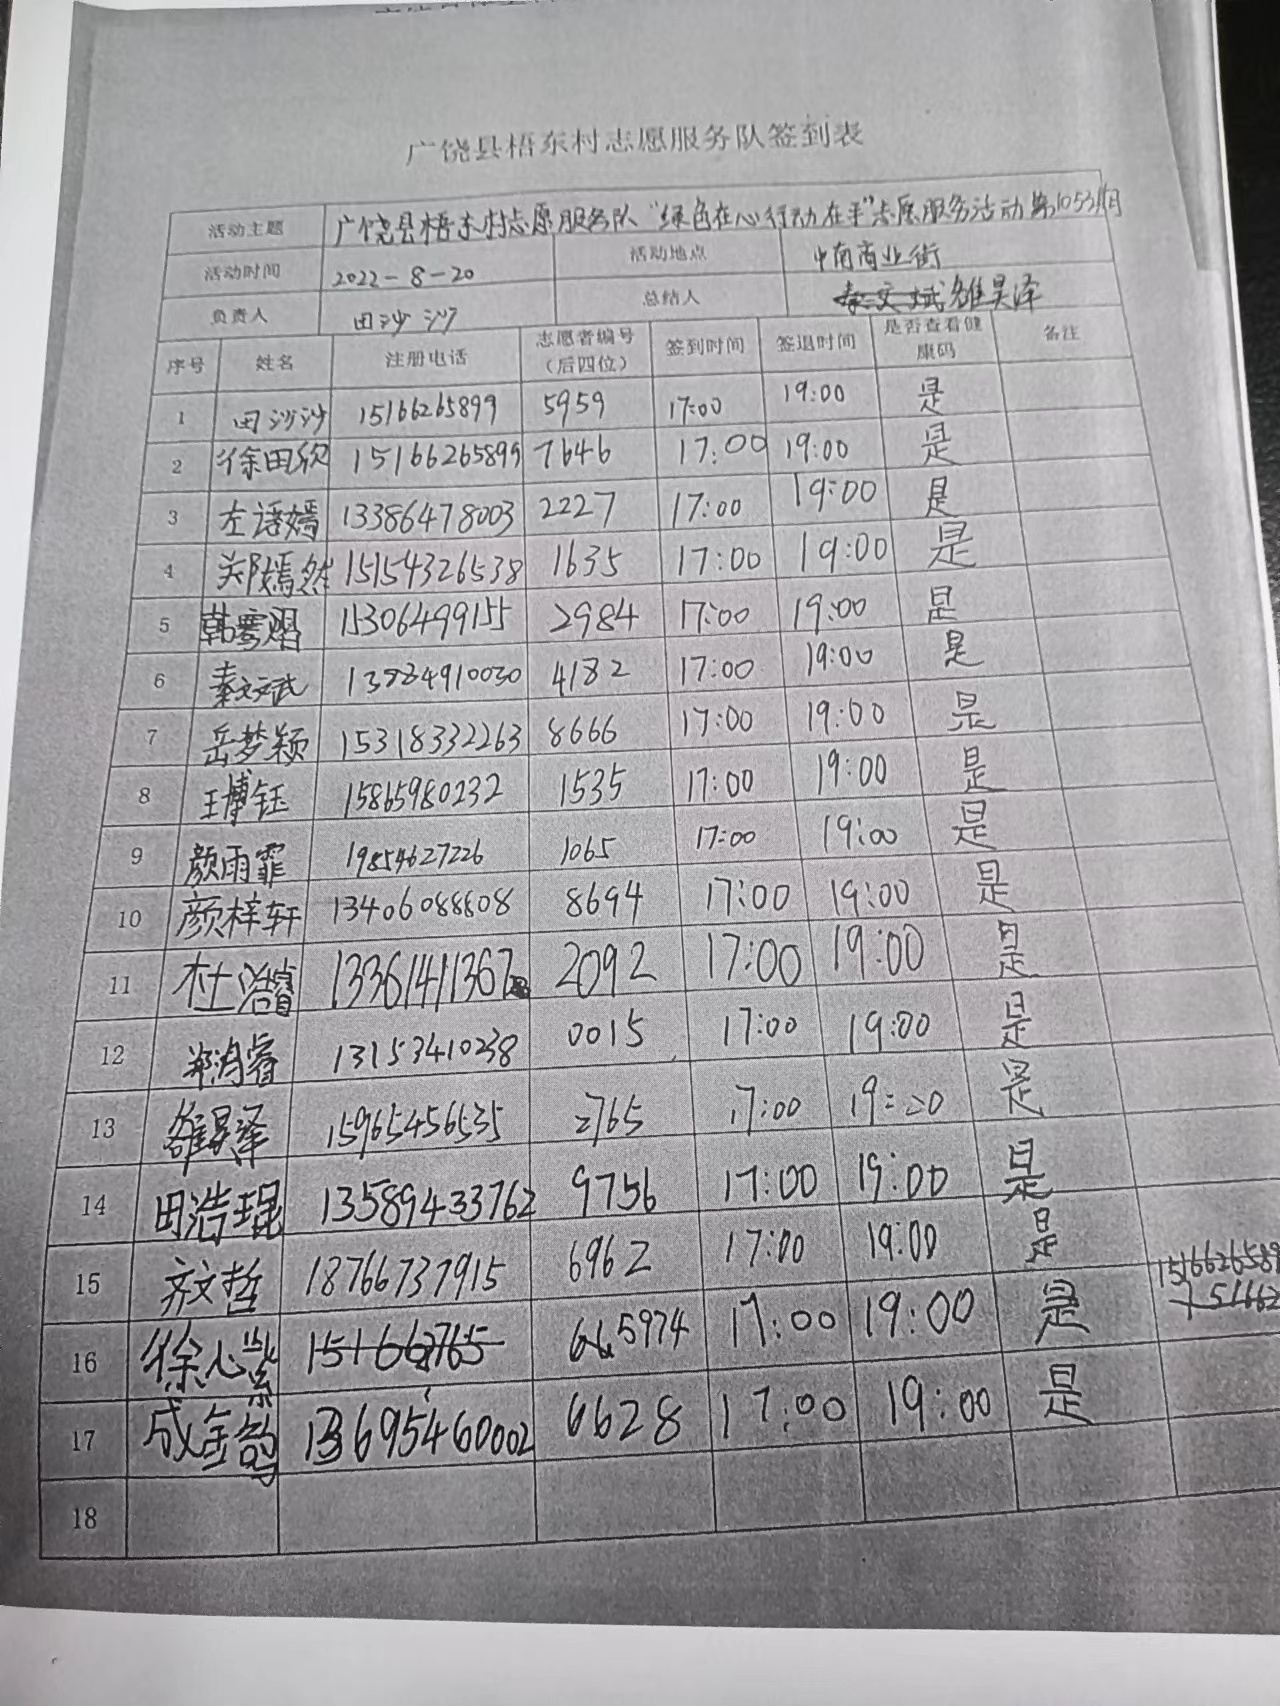 广饶县梧东村志愿服务队签到表
活动主题 广饶县梧东村志愿服务队“绿色在心行动在手”志愿服务活动第1053期
活动时间 2022-8-20 活动地点 中南商业街
负责人 田沙沙 总结人 秦文斌 雒昊泽
序号 姓名 注册电话 志愿者编号（后四位） 签到时间 签退时间 是否查看健康码 备注
1 田沙沙 15166265899 5959 17:00 19:00 是
2 徐田欣 15166265899 7646 17:00 19:00 是
3 左语嫣 13386478003 2227 17:00 19:00 是
4 郑嫣然 15154326538 1635 17:00 19:00 是
5 韩雯熠 15306499155 2984 17:00 19:00 是
6 秦文斌 4182 17:00 19:00 是
7 岳梦颖 15318332263 8666 17:00 19:00 是
8 王博钰 15865980232 1535 17:00 19:00 是
9 颜雨霏 19854627226 1065 17:00 19:00 是
10 颜梓轩 13406088808 8694 17:00 19:00 是
11 杜浩睿 13361411367 2092 17:00 19:00 是
12 郑鸿睿 13153410238 0015 17:00 19:00 是
13 雒昊泽 15965456535 2765 17:00 19:00 是
14 田浩琨 13589433762 9756 17:00 19:00 是
15 齐文哲 18766737915 6962 17:00 19:00 是
16 徐心紫 5974 17:00 19:00 是 1516626589
17 成金 13695460002 6628 17:00 19:00 是
18